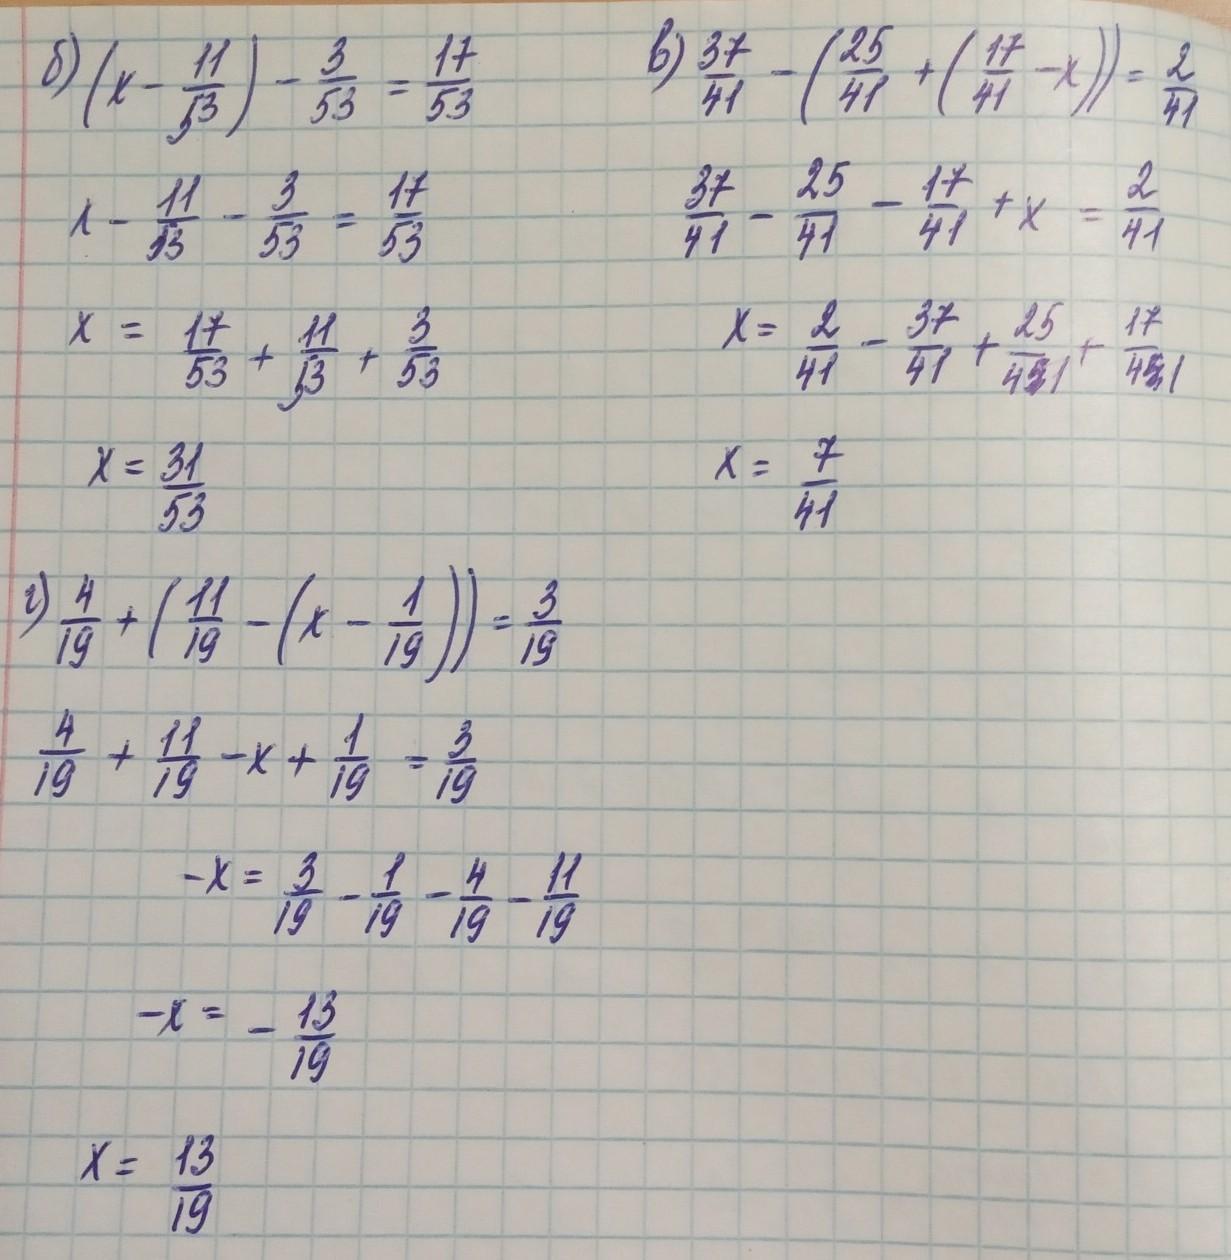 б) (x - 11/53) - 3/53 = 17/53
x - 11/53 - 3/53 = 17/53
x = 17/53 + 11/53 + 3/53
x = 31/53
в) 37/41 - (25/41 + (17/41 - x)) = 2/41
37/41 - 25/41 - 17/41 + x = 2/41
x = 2/41 - 37/41 + 25/41 + 17/41
x = 7/41
г) 4/19 + (11/19 - (x - 1/19)) = 3/19
4/19 + 11/19 - x + 1/19 = 3/19
-x = 3/19 - 1/19 - 4/19 - 11/19
-x = - 13/19
x = 13/19